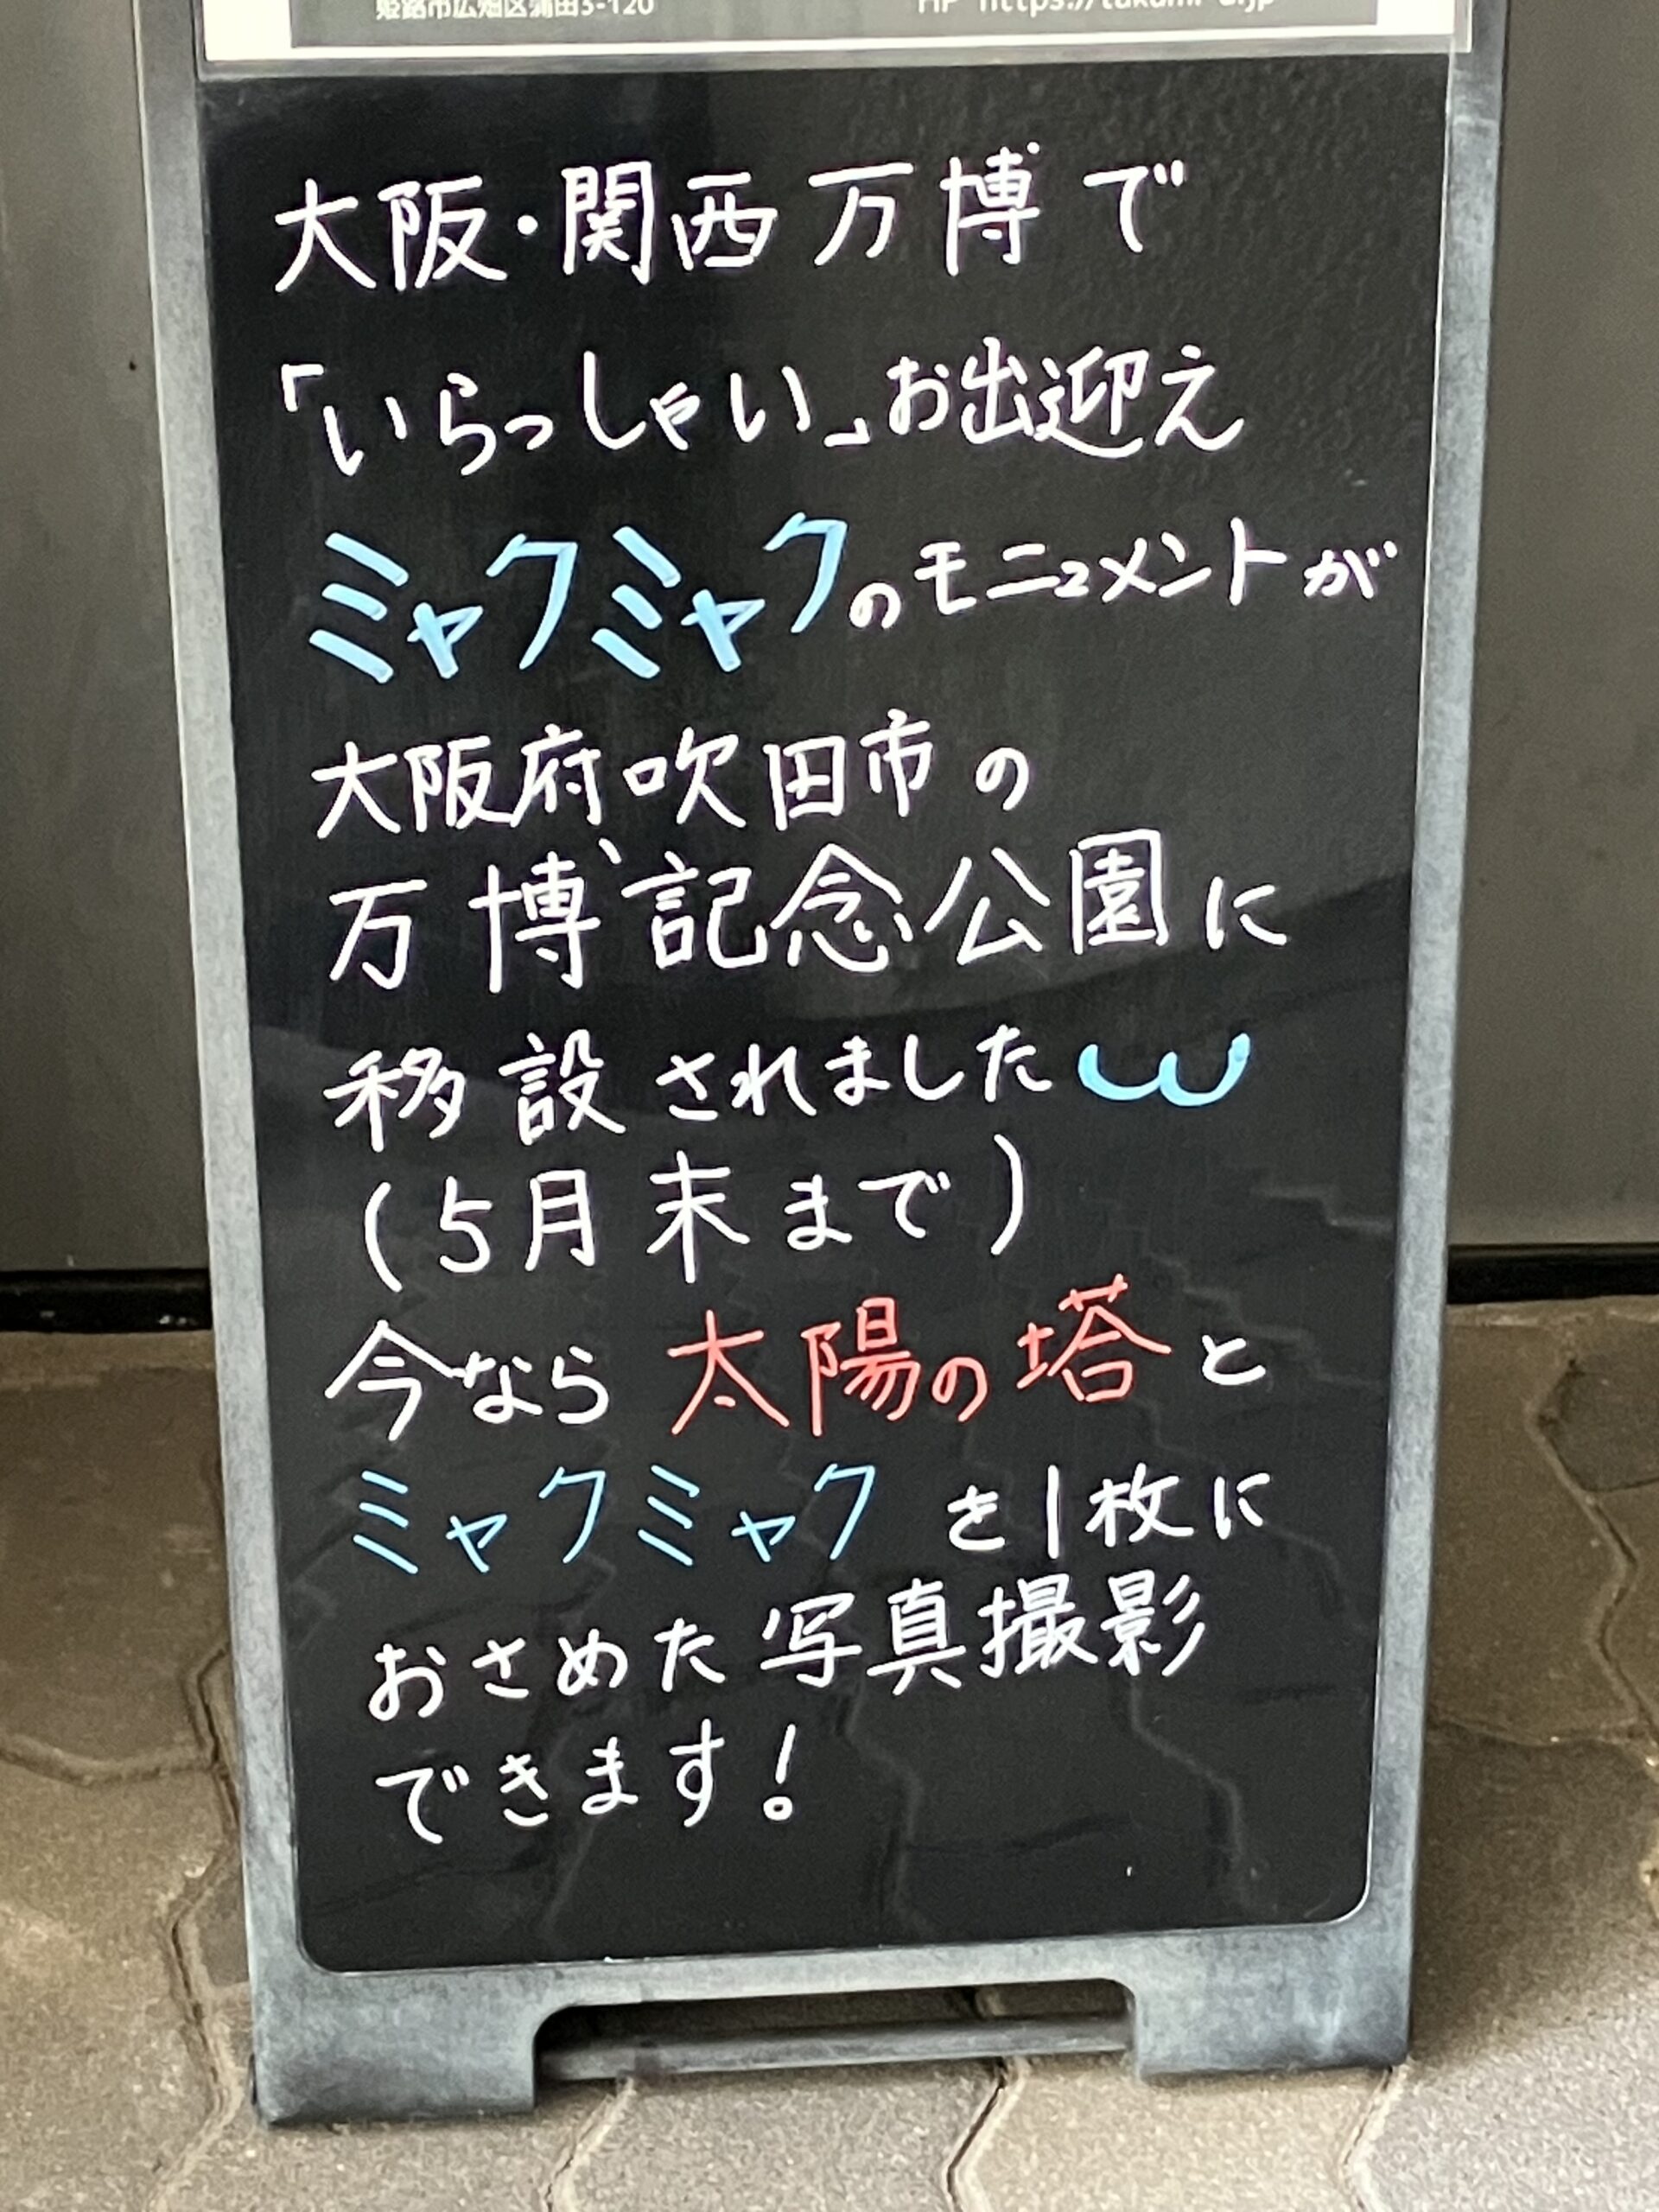 姫路市広畑区蒲田3-120
HP https://takumi-e.jp
大阪・関西万博で
「いらっしゃい」お出迎え
ミャクミャクのモニュメントが
大阪府吹田市の
万博記念公園に
移設されました
(5月末まで)
今なら 太陽の塔と
ミャクミャクを1枚に
おさめた写真撮影
できます!